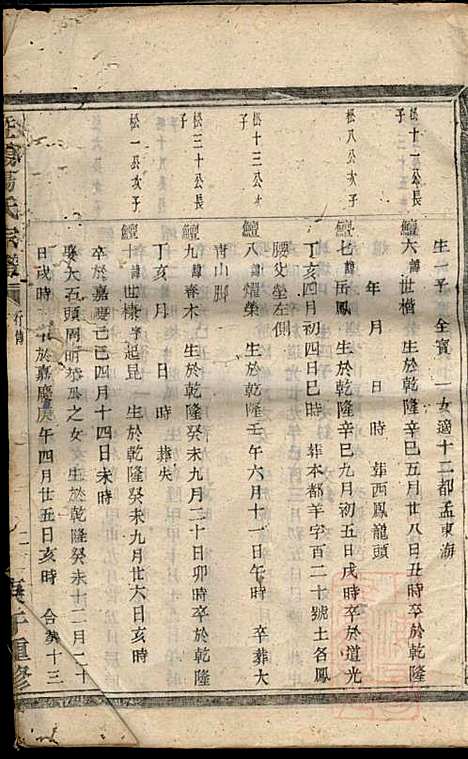 生一子 全寶 一女適十二都孟東海
松十一公長子
鱣六諱世楷 生於乾隆辛巳五月廿八日丑時卒於乾隆
年 月 日 時 葬西鳳龍頭
松八公次子
鱣七諱岳鳳 生於乾隆辛巳九月初五日戌時卒於道光
丁亥四月初四日巳時 葬本都羊字百二十號土名鳳
腰父塋左側
松十三公次子
鱣八諱燿榮 生於乾隆壬午六月十一日午時 卒葬大
青山腳
松三十公長子
鱣九諱春木 生於乾隆癸未九月二十日卯時卒於乾隆
丁亥 月 日 時 葬失
松一公次子
鱣十諱世棣字起昆 生於乾隆癸未九月廿六日亥時
卒於嘉慶己巳四月十四日未時
娶大五頭周明恭公之女 生於乾隆癸未十二月二十
日戌時 卒於嘉慶庚午四月廿五日亥時 合葬十三
氏宗譜 行傳 庚午重修